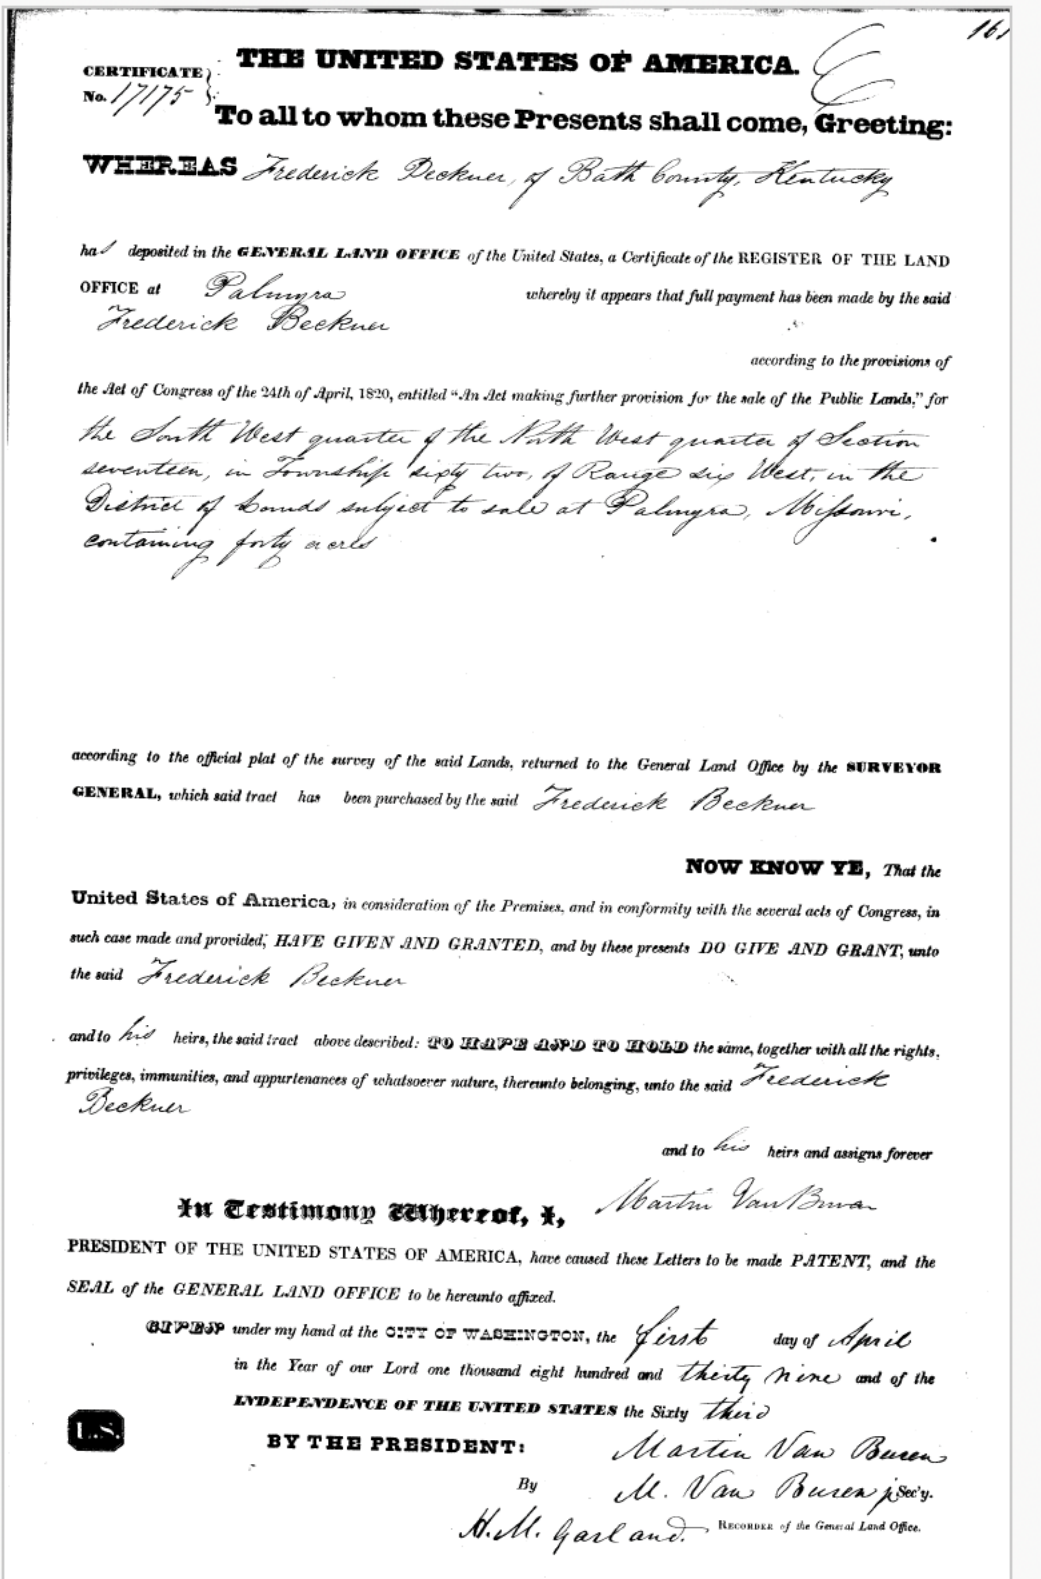 161
THE UNITED STATES OF AMERICA.
CERTIFICATE
No. 17175
To all to whom these Presents shall come, Greeting:
WHEREAS Frederick Beckner, of Bath County, Kentucky
has deposited in the GENERAL LAND OFFICE of the United States, a Certificate of the REGISTER OF THE LAND
OFFICE at Palmyra whereby it appears that full payment has been made by the said
Frederick Beckner
according to the provisions of
the Act of Congress of the 24th of April, 1820, entitled "An Act making further provision for the sale of the Public Lands," for
the South West quarter of the North West quarter of Section
seventeen, in Township sixty two, of Range six West, in the
District of Lands subject to sale at Palmyra, Missouri,
containing forty acres
according to the official plat of the survey of the said Lands, returned to the General Land Office by the SURVEYOR
GENERAL, which said tract has been purchased by the said Frederick Beckner
NOW KNOW YE, That the
United States of America, in consideration of the Premises, and in conformity with the several acts of Congress, in
such case made and provided, HAVE GIVEN AND GRANTED, and by these presents DO GIVE AND GRANT, unto
the said Frederick Beckner
and to his heirs, the said tract above described: TO HAVE AND TO HOLD the same, together with all the rights,
privileges, immunities, and appurtenances of whatsoever nature, thereunto belonging, unto the said Frederick
Beckner
and to his heirs and assigns forever
In Testimony Whereof, I, Martin Van Buren
PRESIDENT OF THE UNITED STATES OF AMERICA, have caused these Letters to be made PATENT, and the
SEAL of the GENERAL LAND OFFICE to be hereunto affixed.
GIVEN under my hand at the CITY OF WASHINGTON, the first day of April
in the Year of our Lord one thousand eight hundred and thirty nine and of the
INDEPENDENCE OF THE UNITED STATES the Sixty third
L.S.
BY THE PRESIDENT: Martin Van Buren
By M. Van Buren jr Sec'y.
H. M. Garland. RECORDER of the General Land Office.